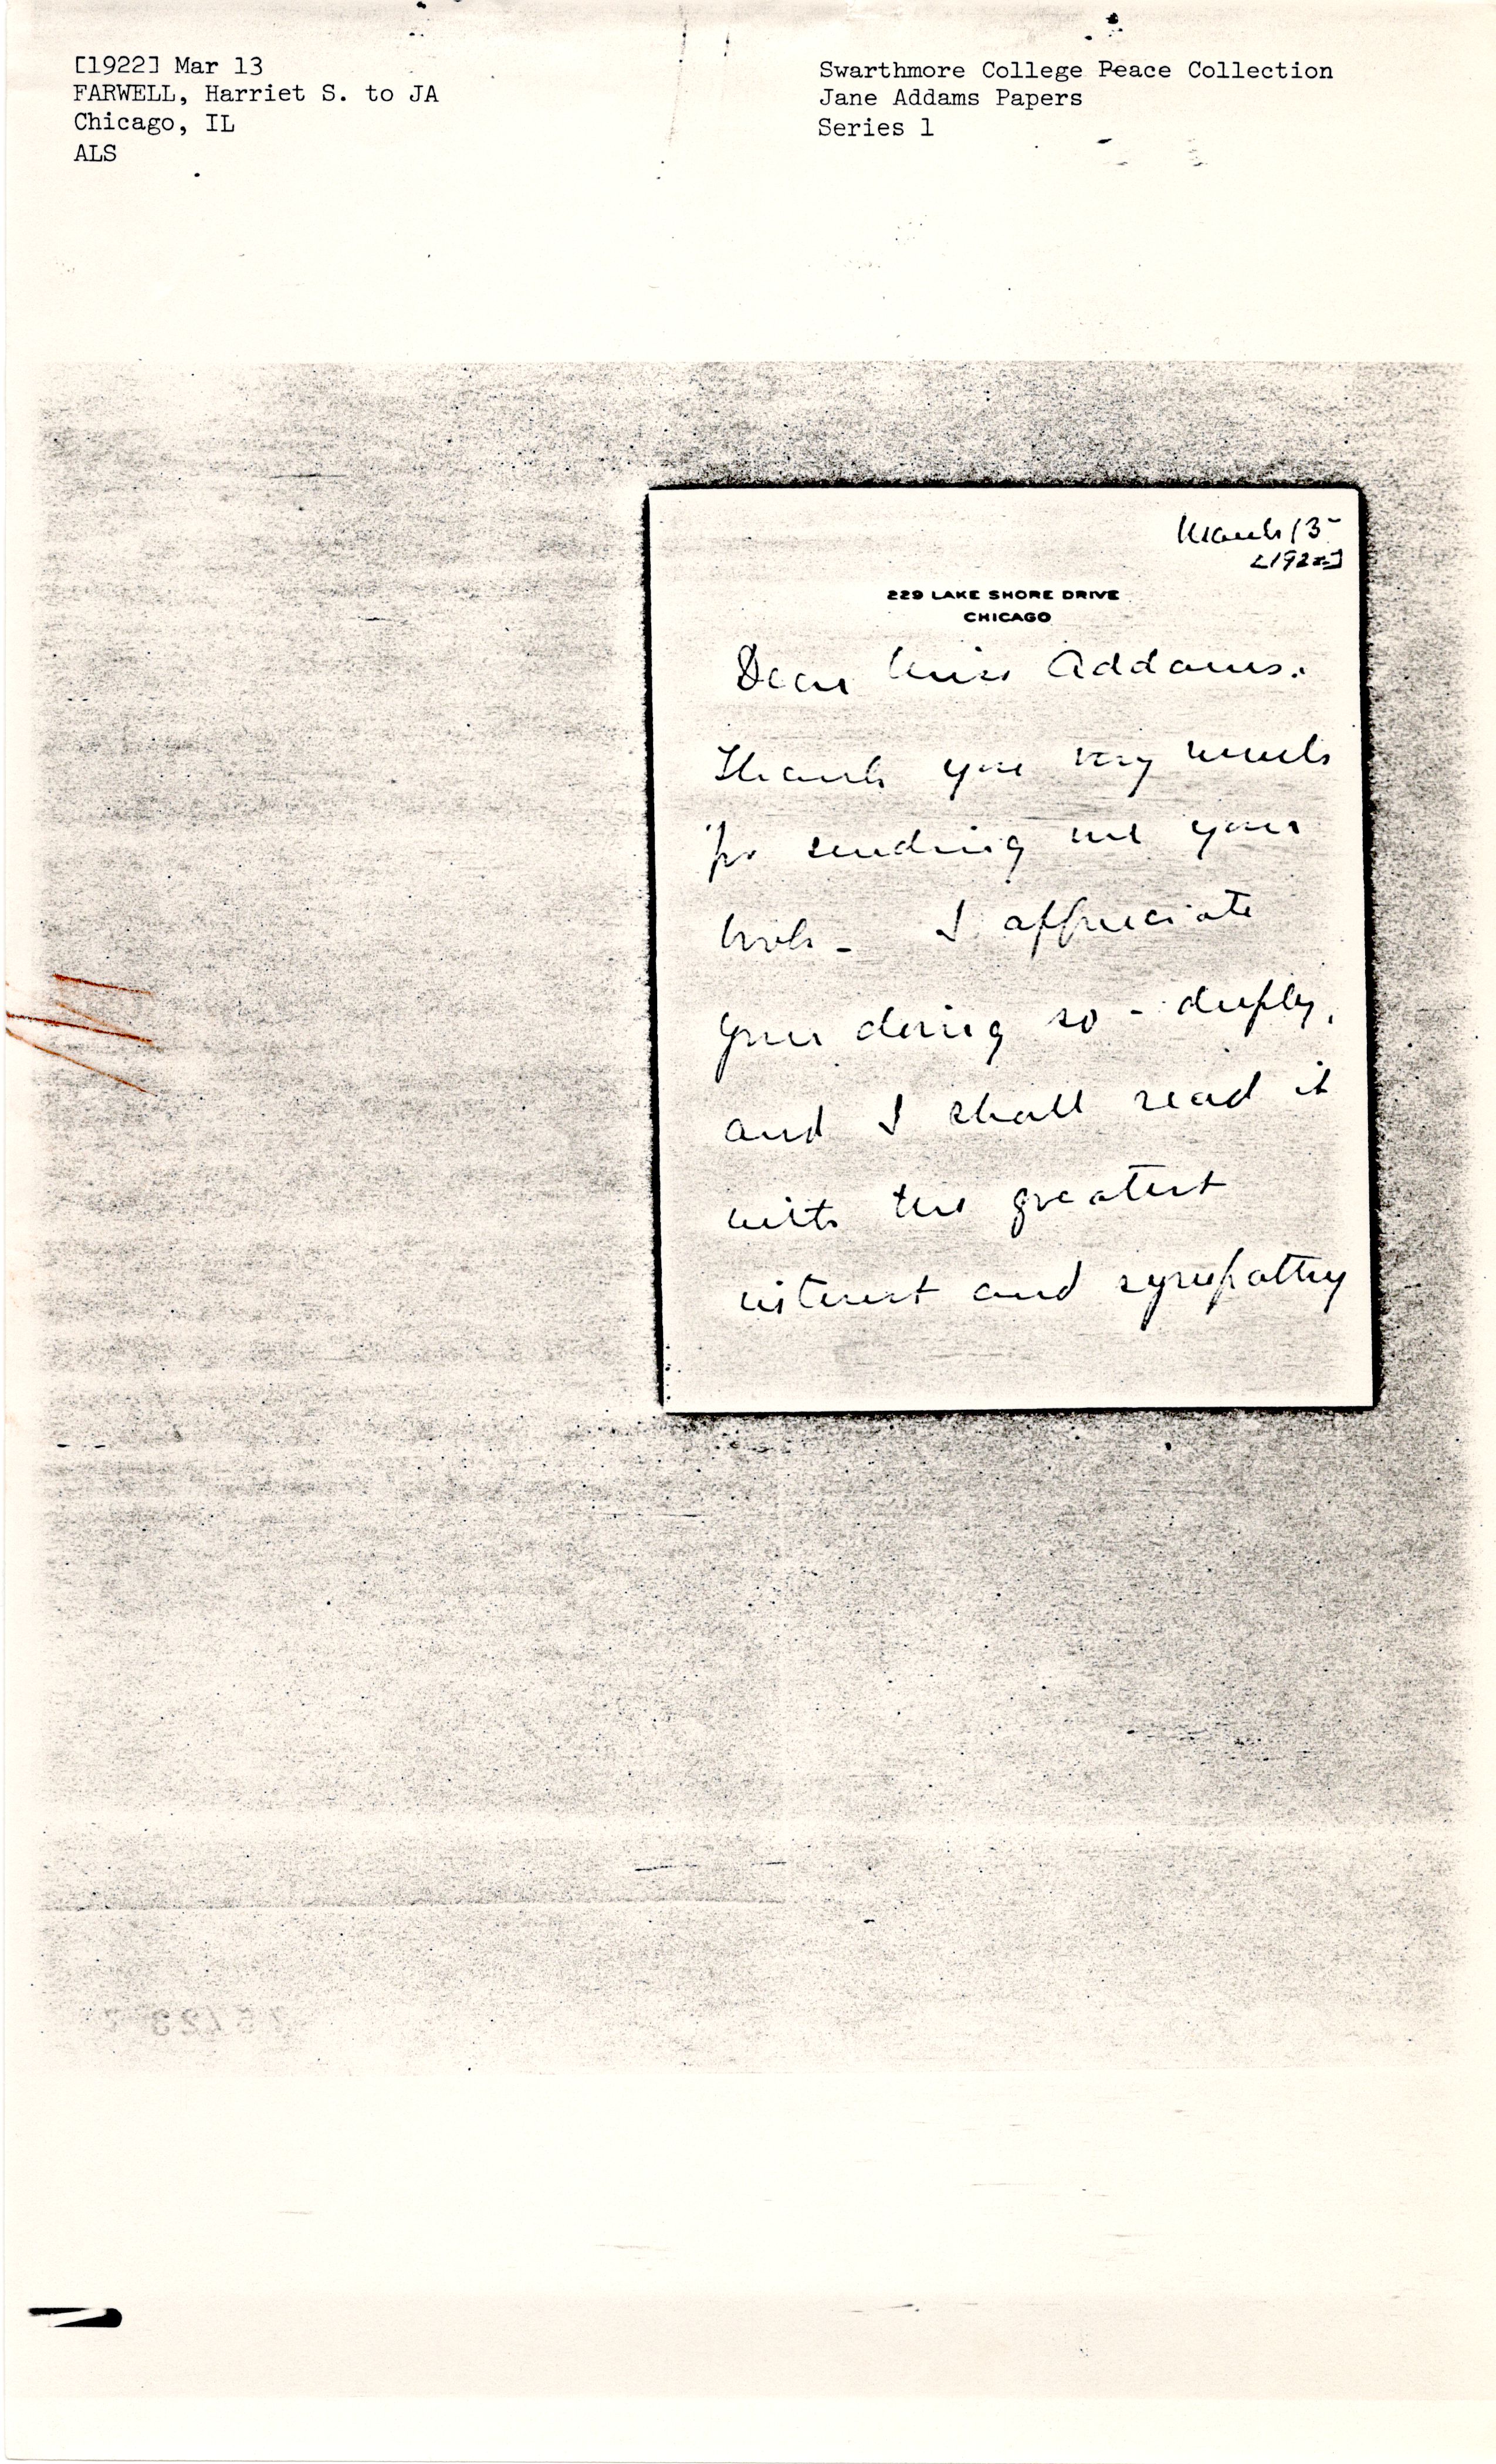 [1922] Mar 13
FARWELL, Harriet S. to JA
Chicago, IL
ALS
Swarthmore College Peace Collection
Jane Addams Papers
Series 1
March 13-
[1922]
229 LAKE SHORE DRIVE
CHICAGO
Dear Miss Addams.
Thank you very much
for sending me your
book - I appreciate
your doing so - deeply,
and I shall read it
with the greatest
interest and sympathy